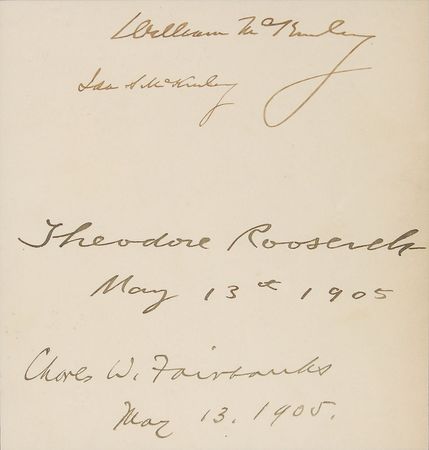 William McKinley
Ida S. McKinley
Theodore Roosevelt
May 13th 1905
Charles W. Fairbanks
May 13. 1905.